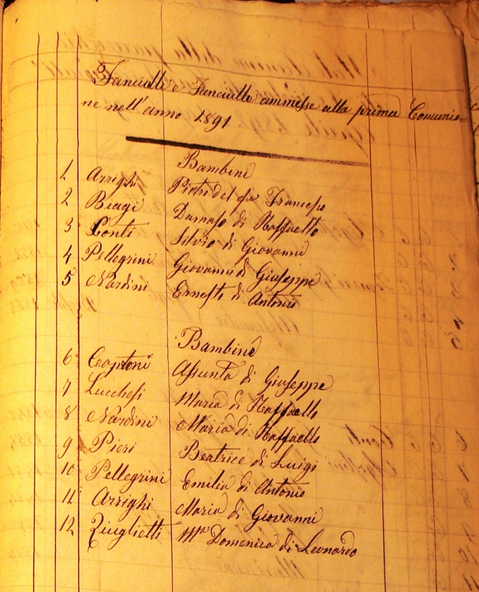 Fanciulli e Fanciulle ammesse alla prima Comunio-
ne nell'anno 1891
Bambini
1 Arrighi Pietro del fu Francesco
2 Biagi Damaso di Raffaello
3 Conti Silvio di Giovanni
4 Pellegrini Giovanni di Giuseppe
5 Nardini Ernesto di Antonio
Bambine
6 Assunta di Giuseppe
7 Lucchesi Maria di Raffaello
8 Nardini Maria di Raffaello
9 Pieri Beatrice di Luigi
10 Pellegrini Emilia di Antonio
11 Arrighi Maria di Giovanni
12 Ziuglietti Mª Domenica di Leonardo